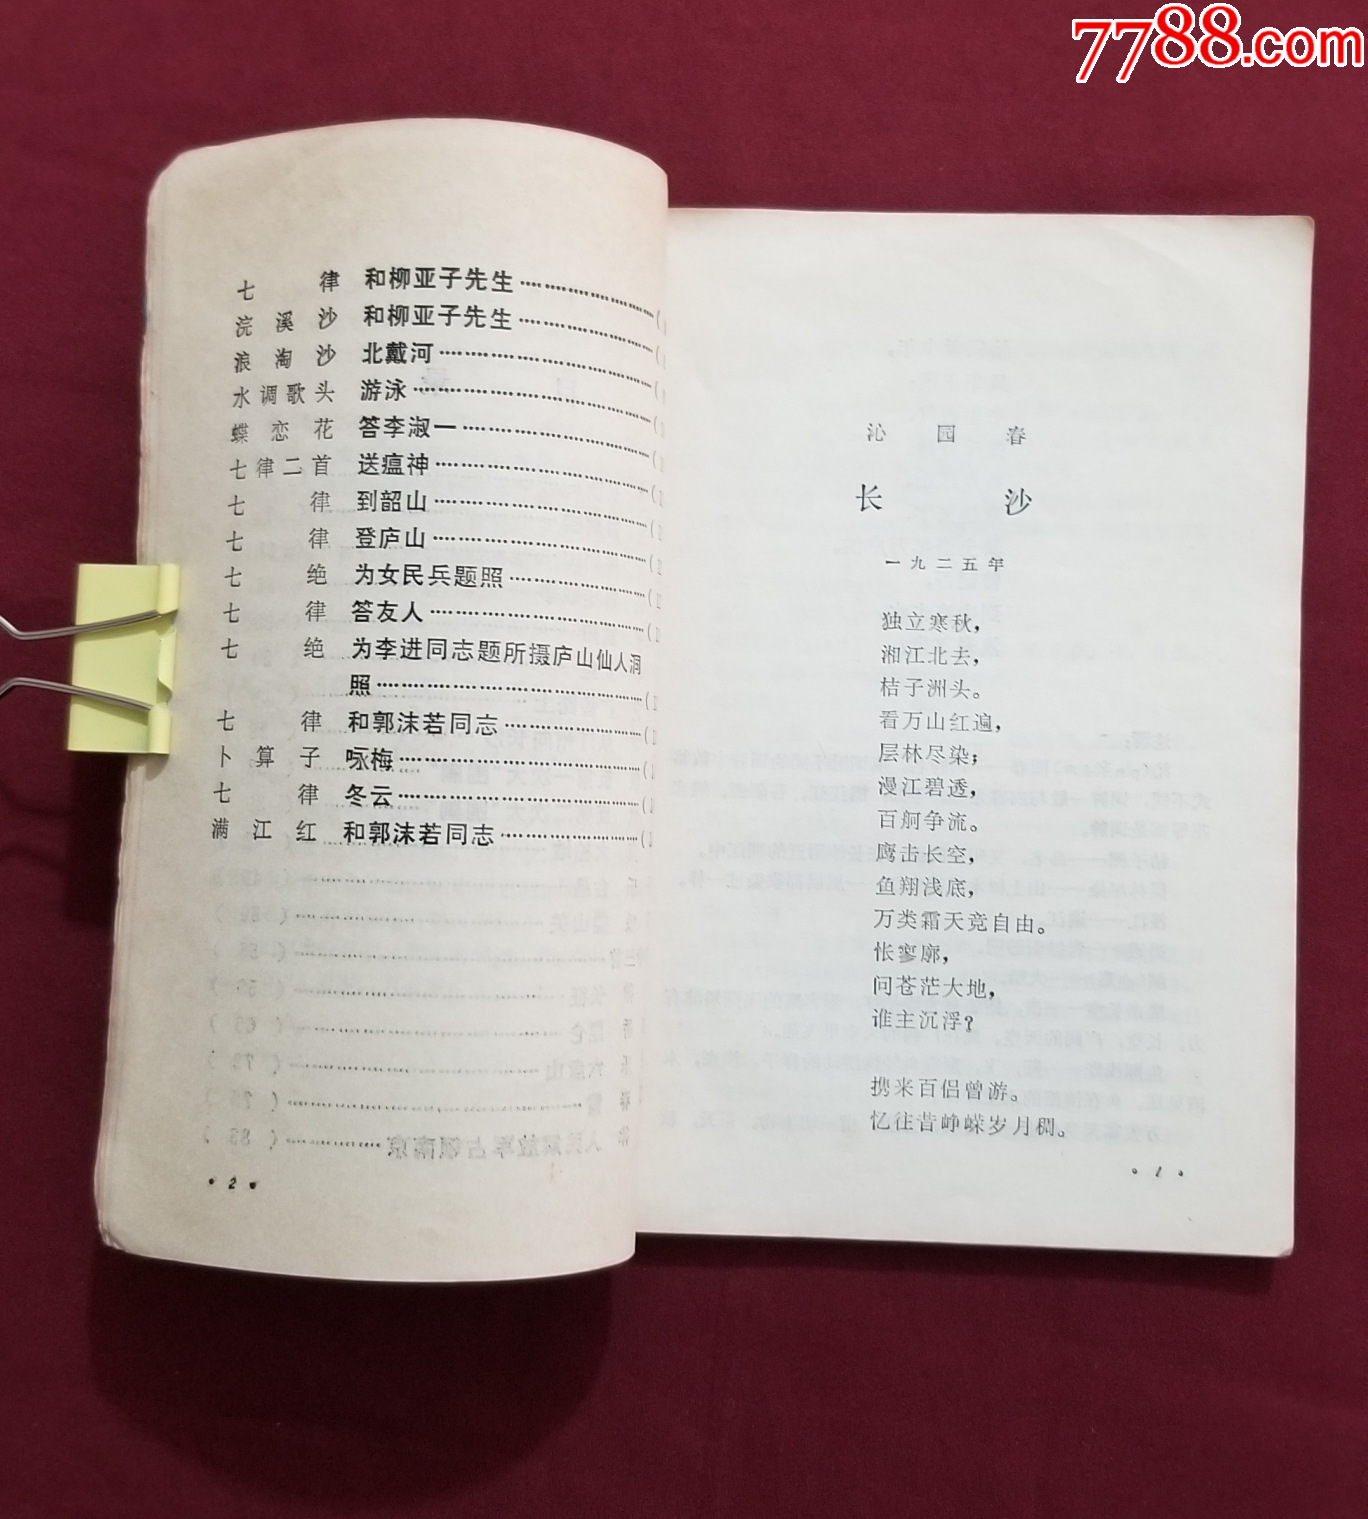 7788.com
七律 和柳亚子先生
浣溪沙 和柳亚子先生
浪淘沙 北戴河
水调歌头 游泳
蝶恋花 答李淑一
七律二首 送瘟神
七律 到韶山
七律 登庐山
七绝 为女民兵题照
七律 答友人
七绝 为李进同志题所摄庐山仙人洞
照
七律 和郭沫若同志
卜算子 咏梅
七律 冬云
满江红 和郭沫若同志
• 2 •
沁园春
长沙
一九二五年
独立寒秋，
湘江北去，
桔子洲头。
看万山红遍，
层林尽染；
漫江碧透，
百舸争流。
鹰击长空，
鱼翔浅底，
万类霜天竞自由。
怅寥廓，
问苍茫大地，
谁主沉浮？
携来百侣曾游。
忆往昔峥嵘岁月稠。
• 1 •